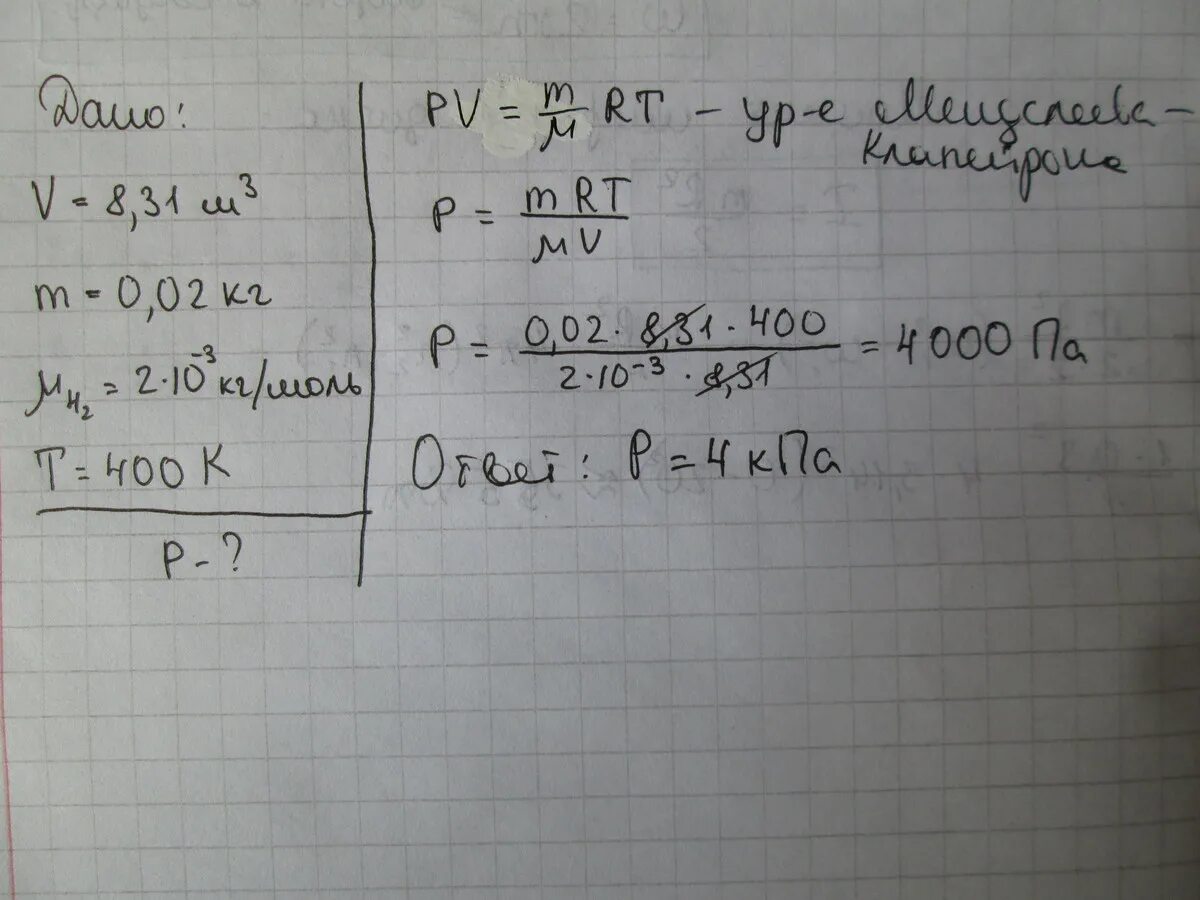 Дано:
V = 8,31 м³
m = 0,02 кг
μH₂ = 2·10⁻³ кг/моль
T = 400 К
P - ?
PV = m/μ RT – ур-е Менделеева –
Клапейрона
P = mRT/μV
P = 0,02 · 8,31 · 400 / 2·10⁻³ · 8,31 = 4000 Па
Ответ: P = 4 кПа